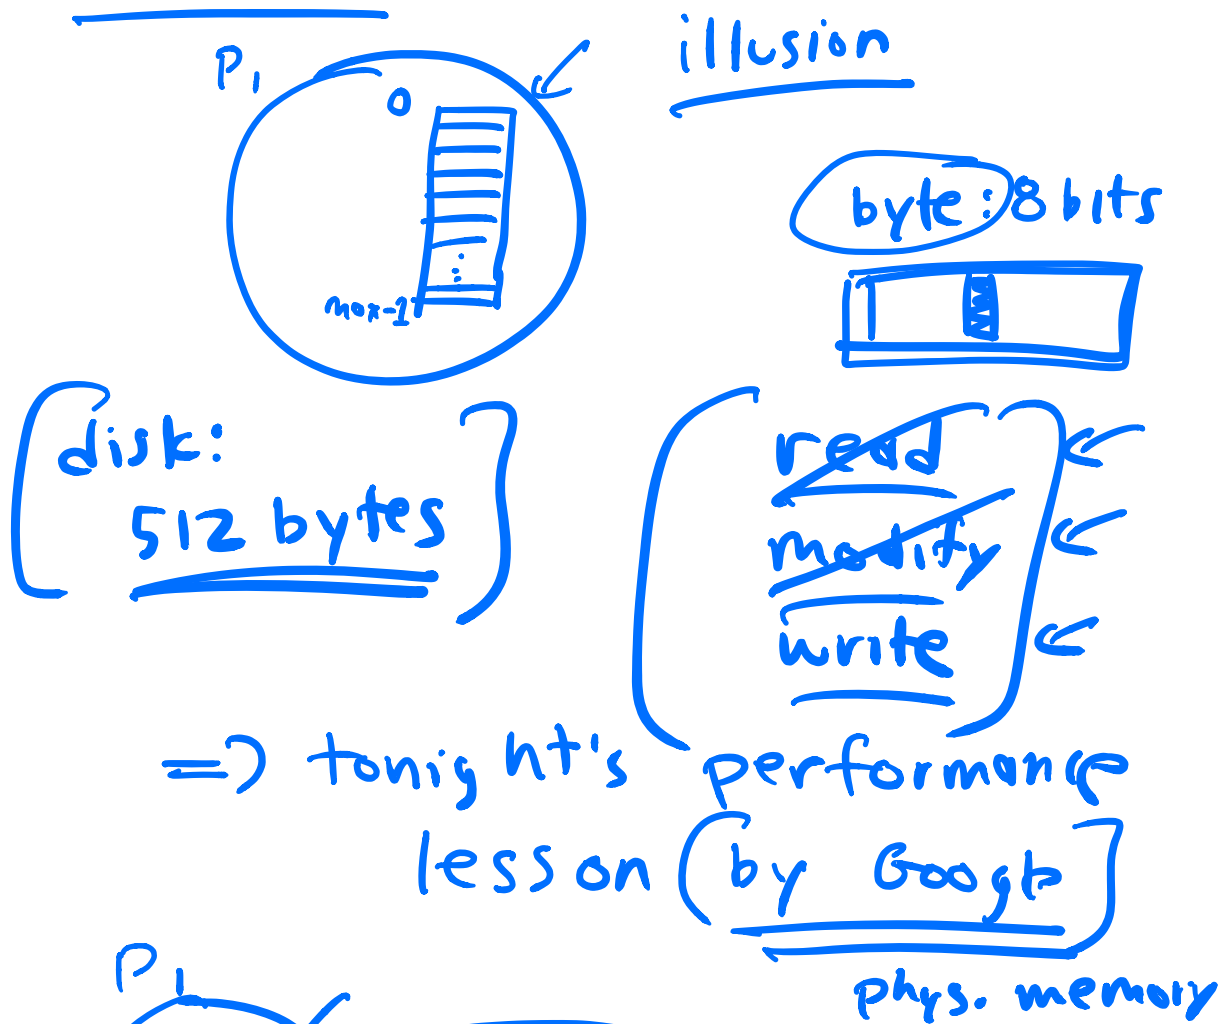 P1
illusion
0
byte: 8 bits
max-1
disk:
512 bytes
read
modify
write
=> tonight's performance
lesson (by Google)
P1
phys. memory